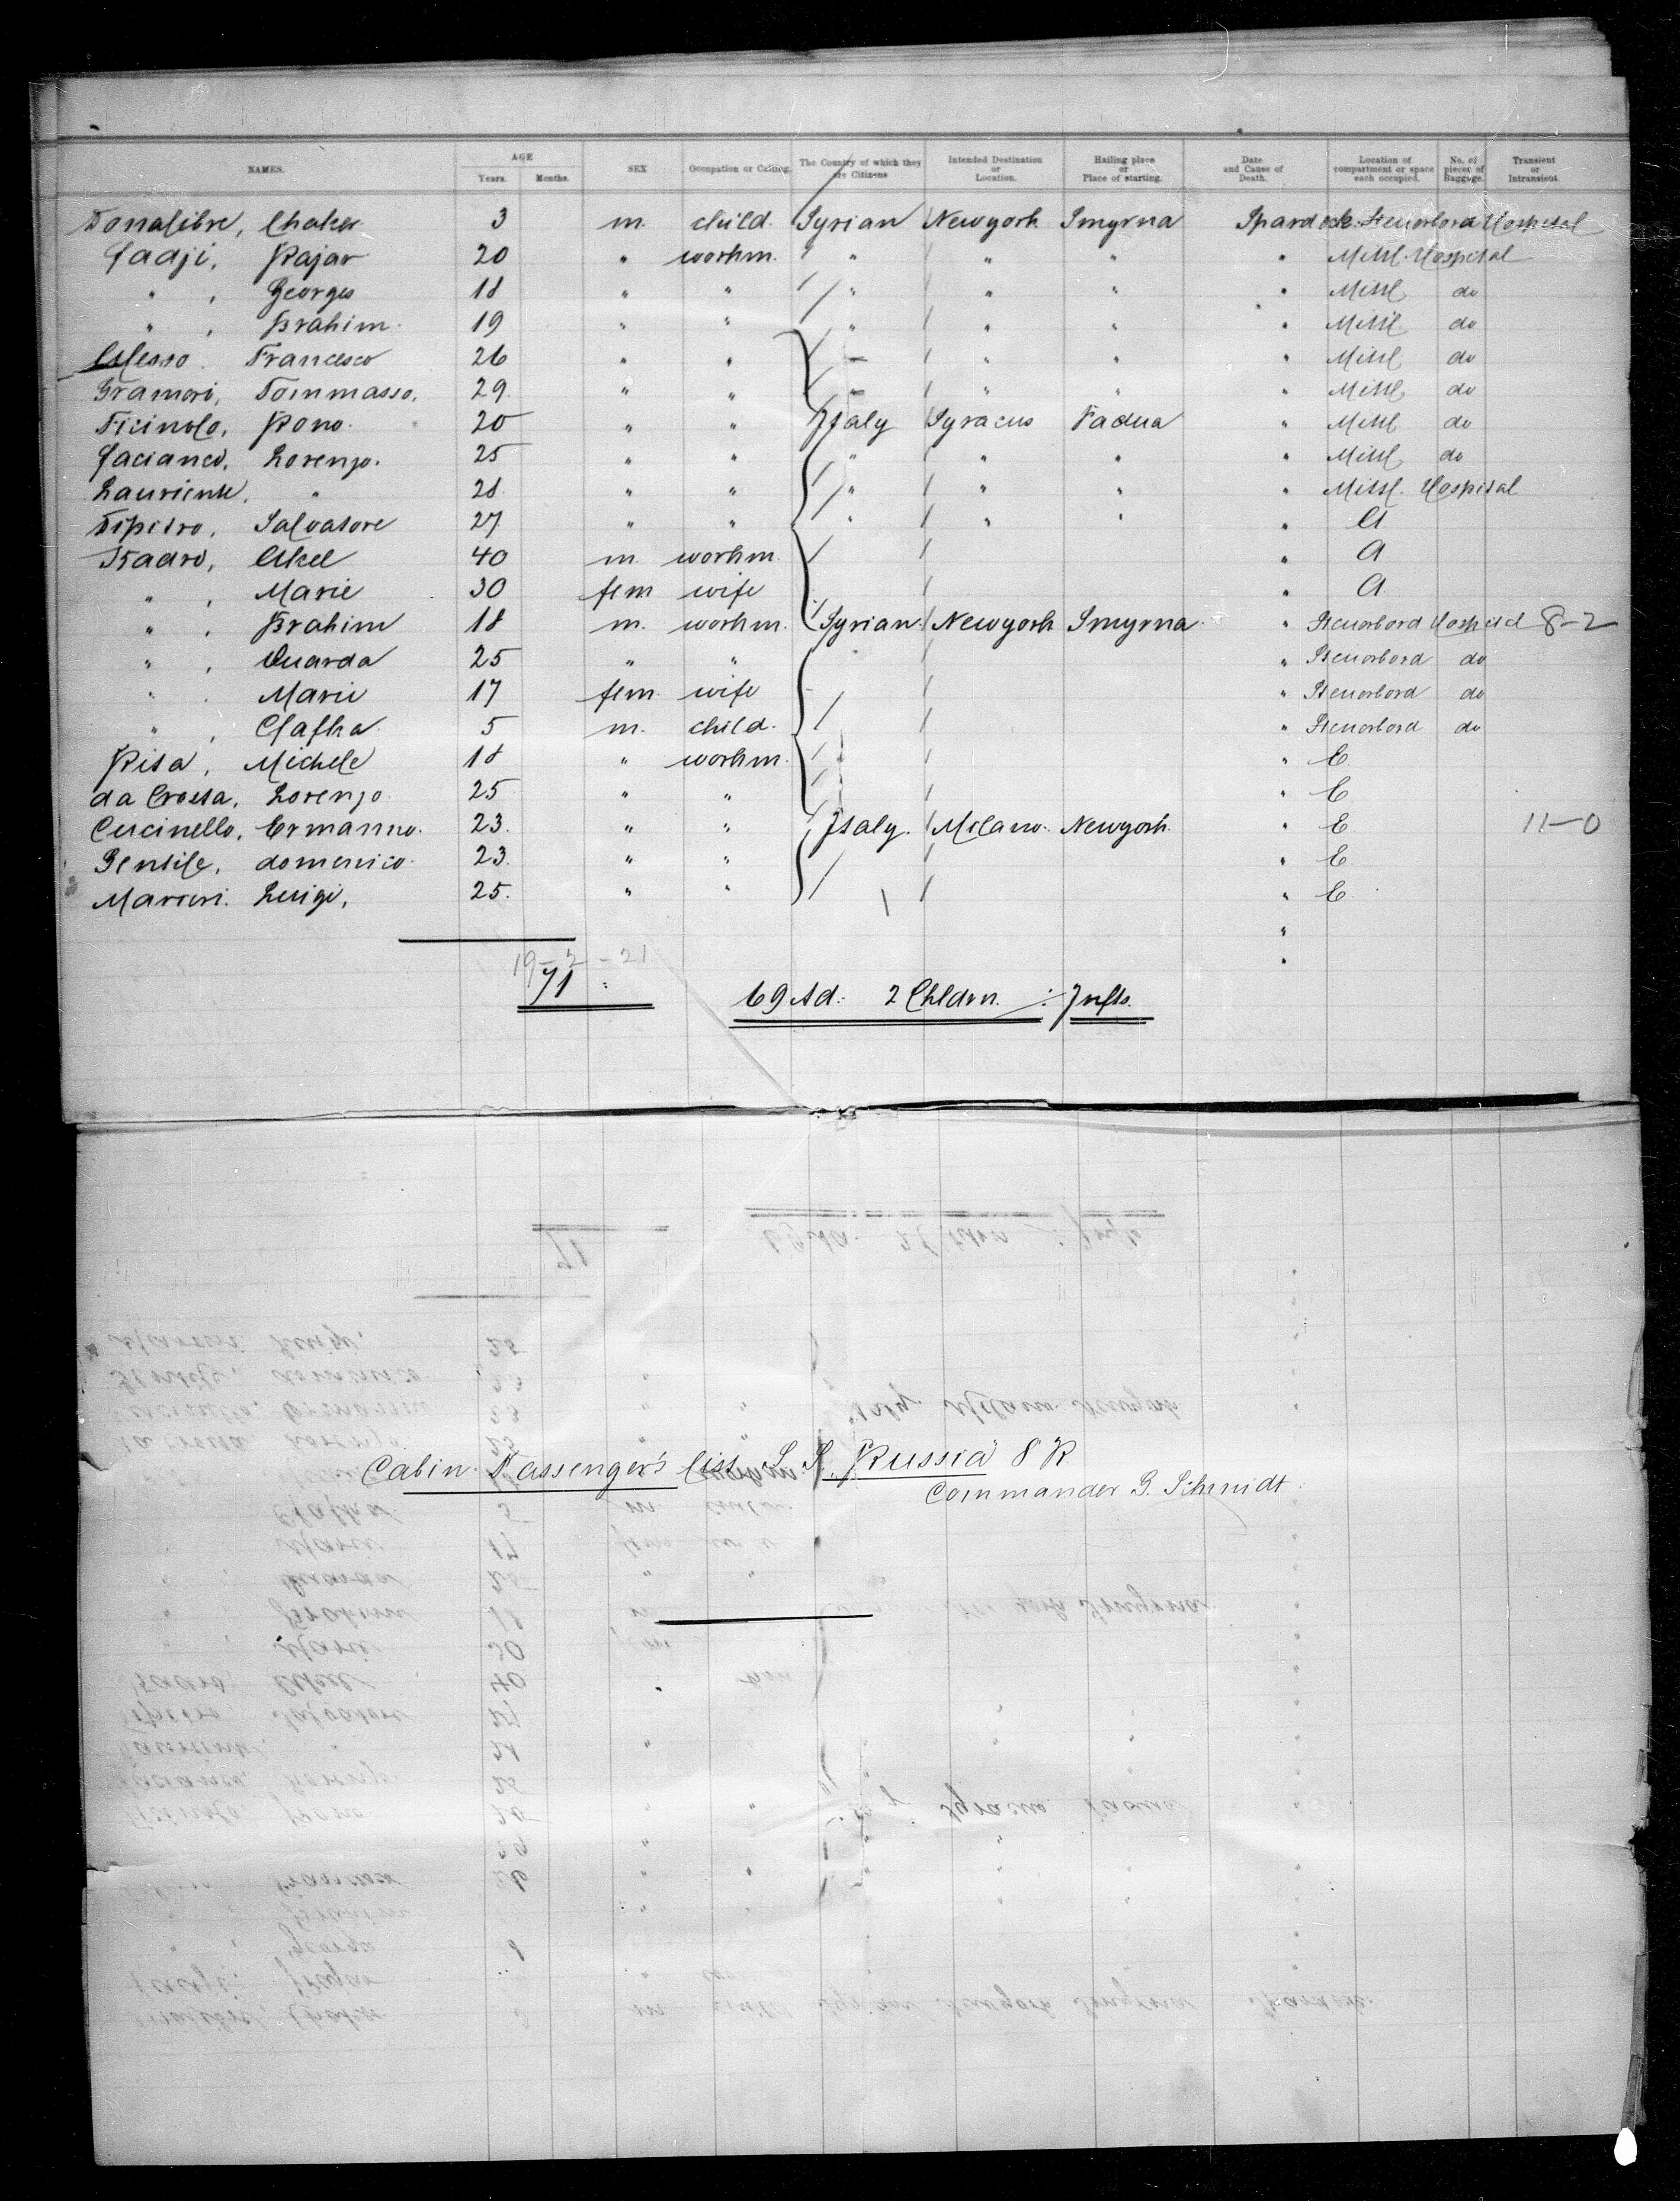 NAMES. AGE Years. Months. SEX Occupation or Calling. The Country of which they are Citizens Intended Destination or Location. Hailing place or Place of starting. Date and Cause of Death. Location of compartment or space each occupied. No. of pieces of Baggage. Transient or Intransient.
Chaker 3 m. child. Syrian Newyork Smyrna Spardeck Steuorbord Hospital
Kajar 20 " workm. " " " " Mittl. Hospital
" , Georges 18 " " " " " " Mittl do
" , Ibrahim. 19 " " " " " " Mittl do
Francesco 26 " " " " " Mittl do
Gramori, Tommasso. 29. " " " " " Mittl do
Ticinolo, 20 " " Italy Syracus Padua " Mittl do
Lorenzo. 25 " " " " " " Mittl do
" 28. " " " " " " Mittl. Hospital
Dipietro, Salvatore 27 " " " " " " A
Kadro, Akel 40 m. workm. " A
" , Marie 30 fem wife " A
" , Ibrahim 18 m. workm. Syrian. Newyork Smyrna. " Steuorbord Hospital 8-2
" , Ouarda 25 " " " Steuorbord do
" . Marie 17 fem. wife " Steuorbord do
" , 5 m. child. " Steuorbord do
Risa, Michele 18 " workm. " E
da Crosta, Lorenzo 25 " " " E
Cucinello, Ermanno. 23. " " Italy. Milano. Newyork. " E 11-0
Gentile, domenico. 23. " " " E
Luigi, 25. " " " E
"
"
19-2-21
71
69 Ad: 2 Chldrn. Infts.
Cabin Passenger's list S. S. "Russia" 8 R
Commander G. Schmidt.